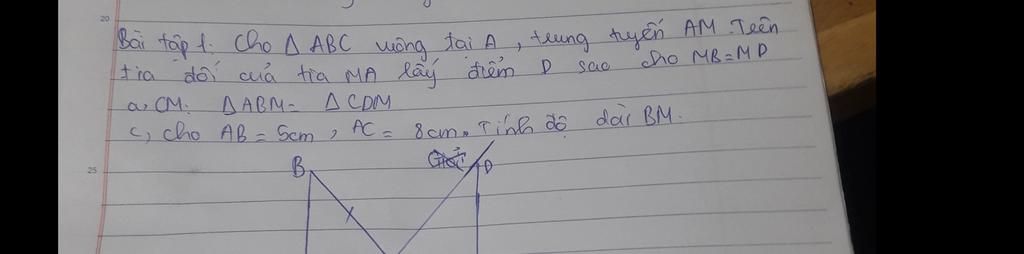 20
Bài tập 1: Cho Δ ABC vuông tại A, trung tuyến AM. Trên
tia đối của tia MA lấy điểm D sao cho MB=MD
a, CM: ΔABM= ΔCDM
c, cho AB= 5cm, AC= 8cm. Tính độ dài BM.
B D
25